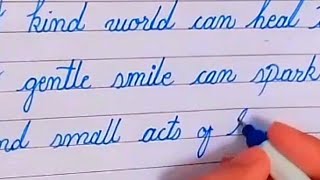 kind world can heal
gentle smile can spark
nd small acts of